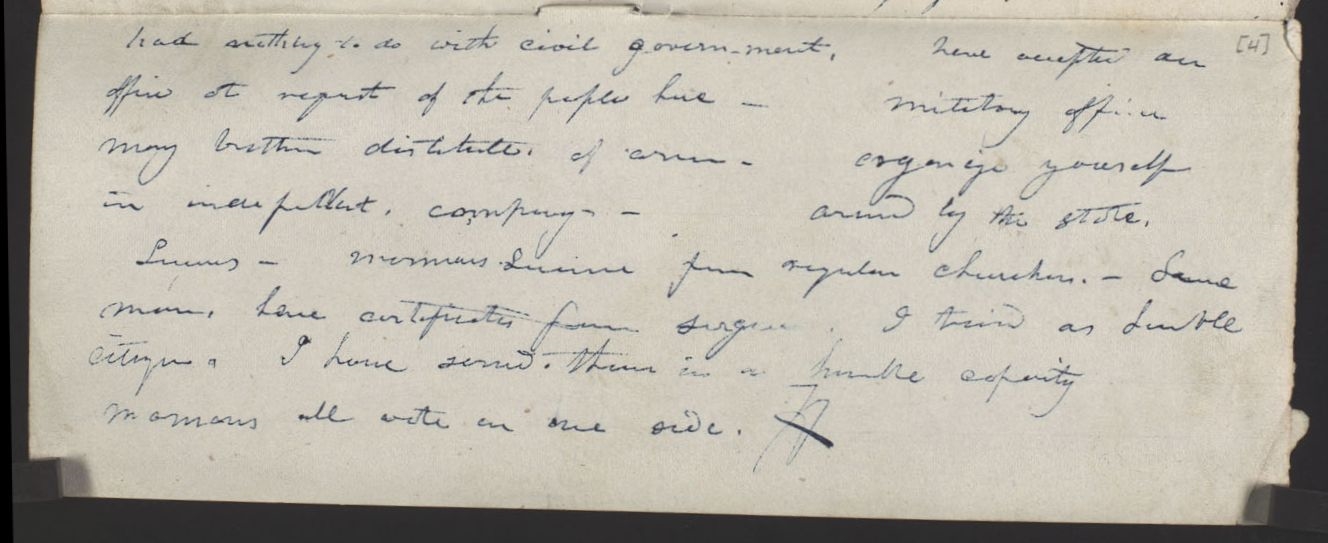 had nothing to do with civil government, have accepted an [4]
office at request of the people here — military office
many brethren distitute of arms — organize yourself
in independent, company — armed by the state.
mormans from regular churches. — Some
have certificates from I tried as humble
citizen. I have served them in a humble capacity
mormans all vote on one side.